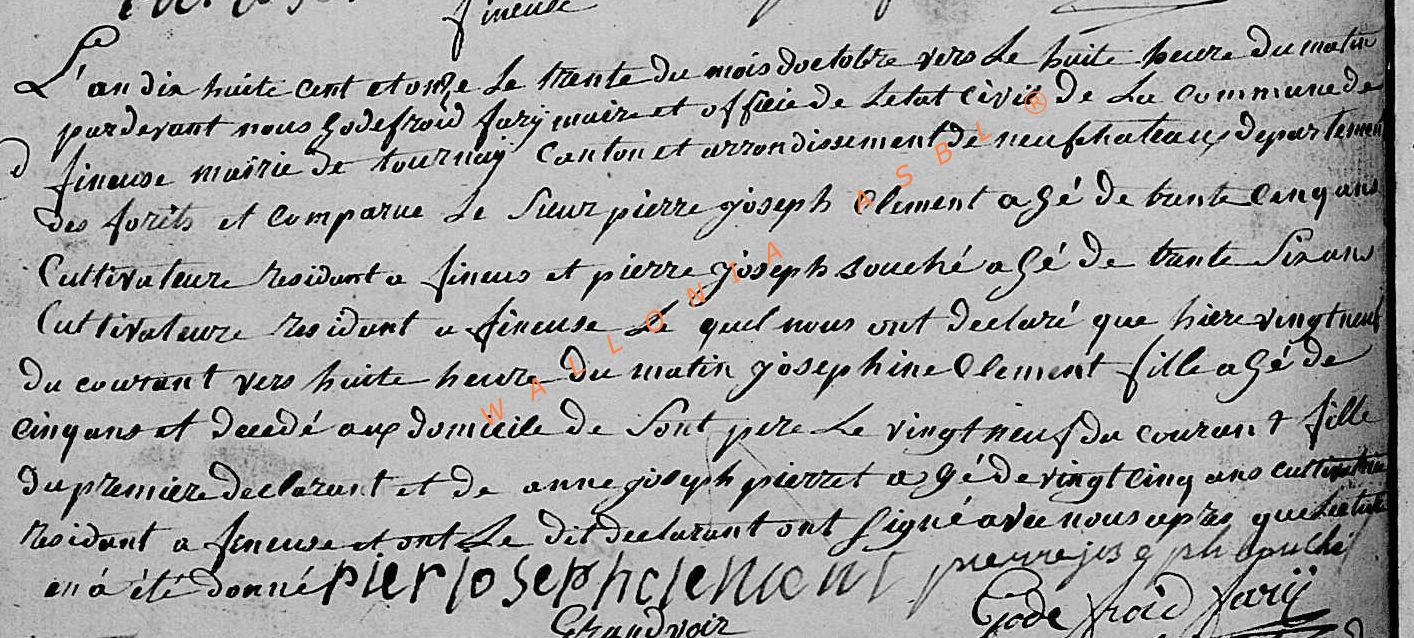 fineuse
L'an dix huite cent et onze le trente du mois doctobre vers le huite heure du matin
pardevant nous Godefroid farÿ maire et officie de letat civil de La commune de
fineuse mairie de tournaÿ Canton et arrondissement de neufchateaux departement
des forêts et comparue le Sieur pierre joseph Clement agé de trente Cinq ans
Cultivateure residant a fineus et pierre joseph souché agé de trante Six ans
Cultivateure residant a fineuse Le quel nous ont declaré que hiere vingt neuf
du courant vers huite heure du matin josephine Clement fille agé de
cinq ans et decedé aux domicile de Sont pere Le vingt neuf du courant fille
du premiere declarant et de anne joseph pierret agé de vingt cinq ans
residant a fineuse et ont Le dit declarant ont Signé avec nous apres que Lecture
en á été donné pierjosephclement pierre joseph souché
Grandvoir Gode froid farÿ
WALLONIA ASBL ®